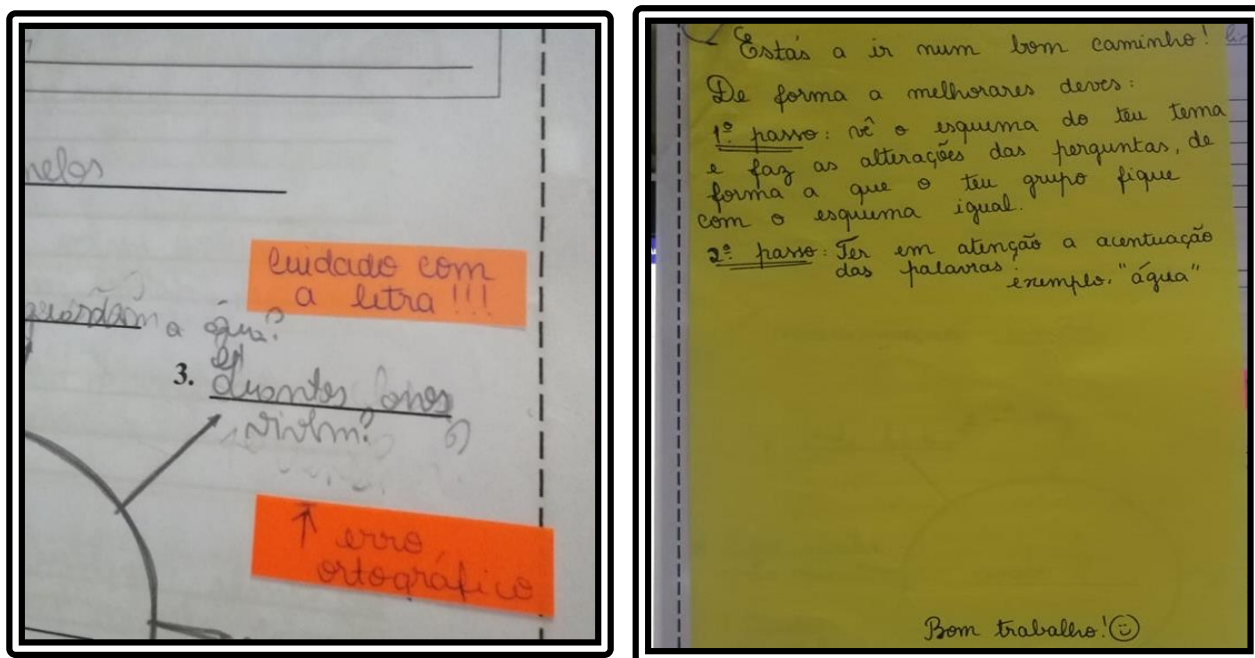 nelos
Cuidado com
a letra!!!
a água?
3. Quantos anos
vivem?
↑ erro
ortográfico
Estás a ir num bom caminho!
De forma a melhorares deves:
1º passo: vê o esquema do teu tema
e faz as alterações das perguntas, de
forma a que o teu grupo fique
com o esquema igual.
2º passo: Ter em atenção a acentuação
das palavras, exemplo: "água"
Bom trabalho! ☺